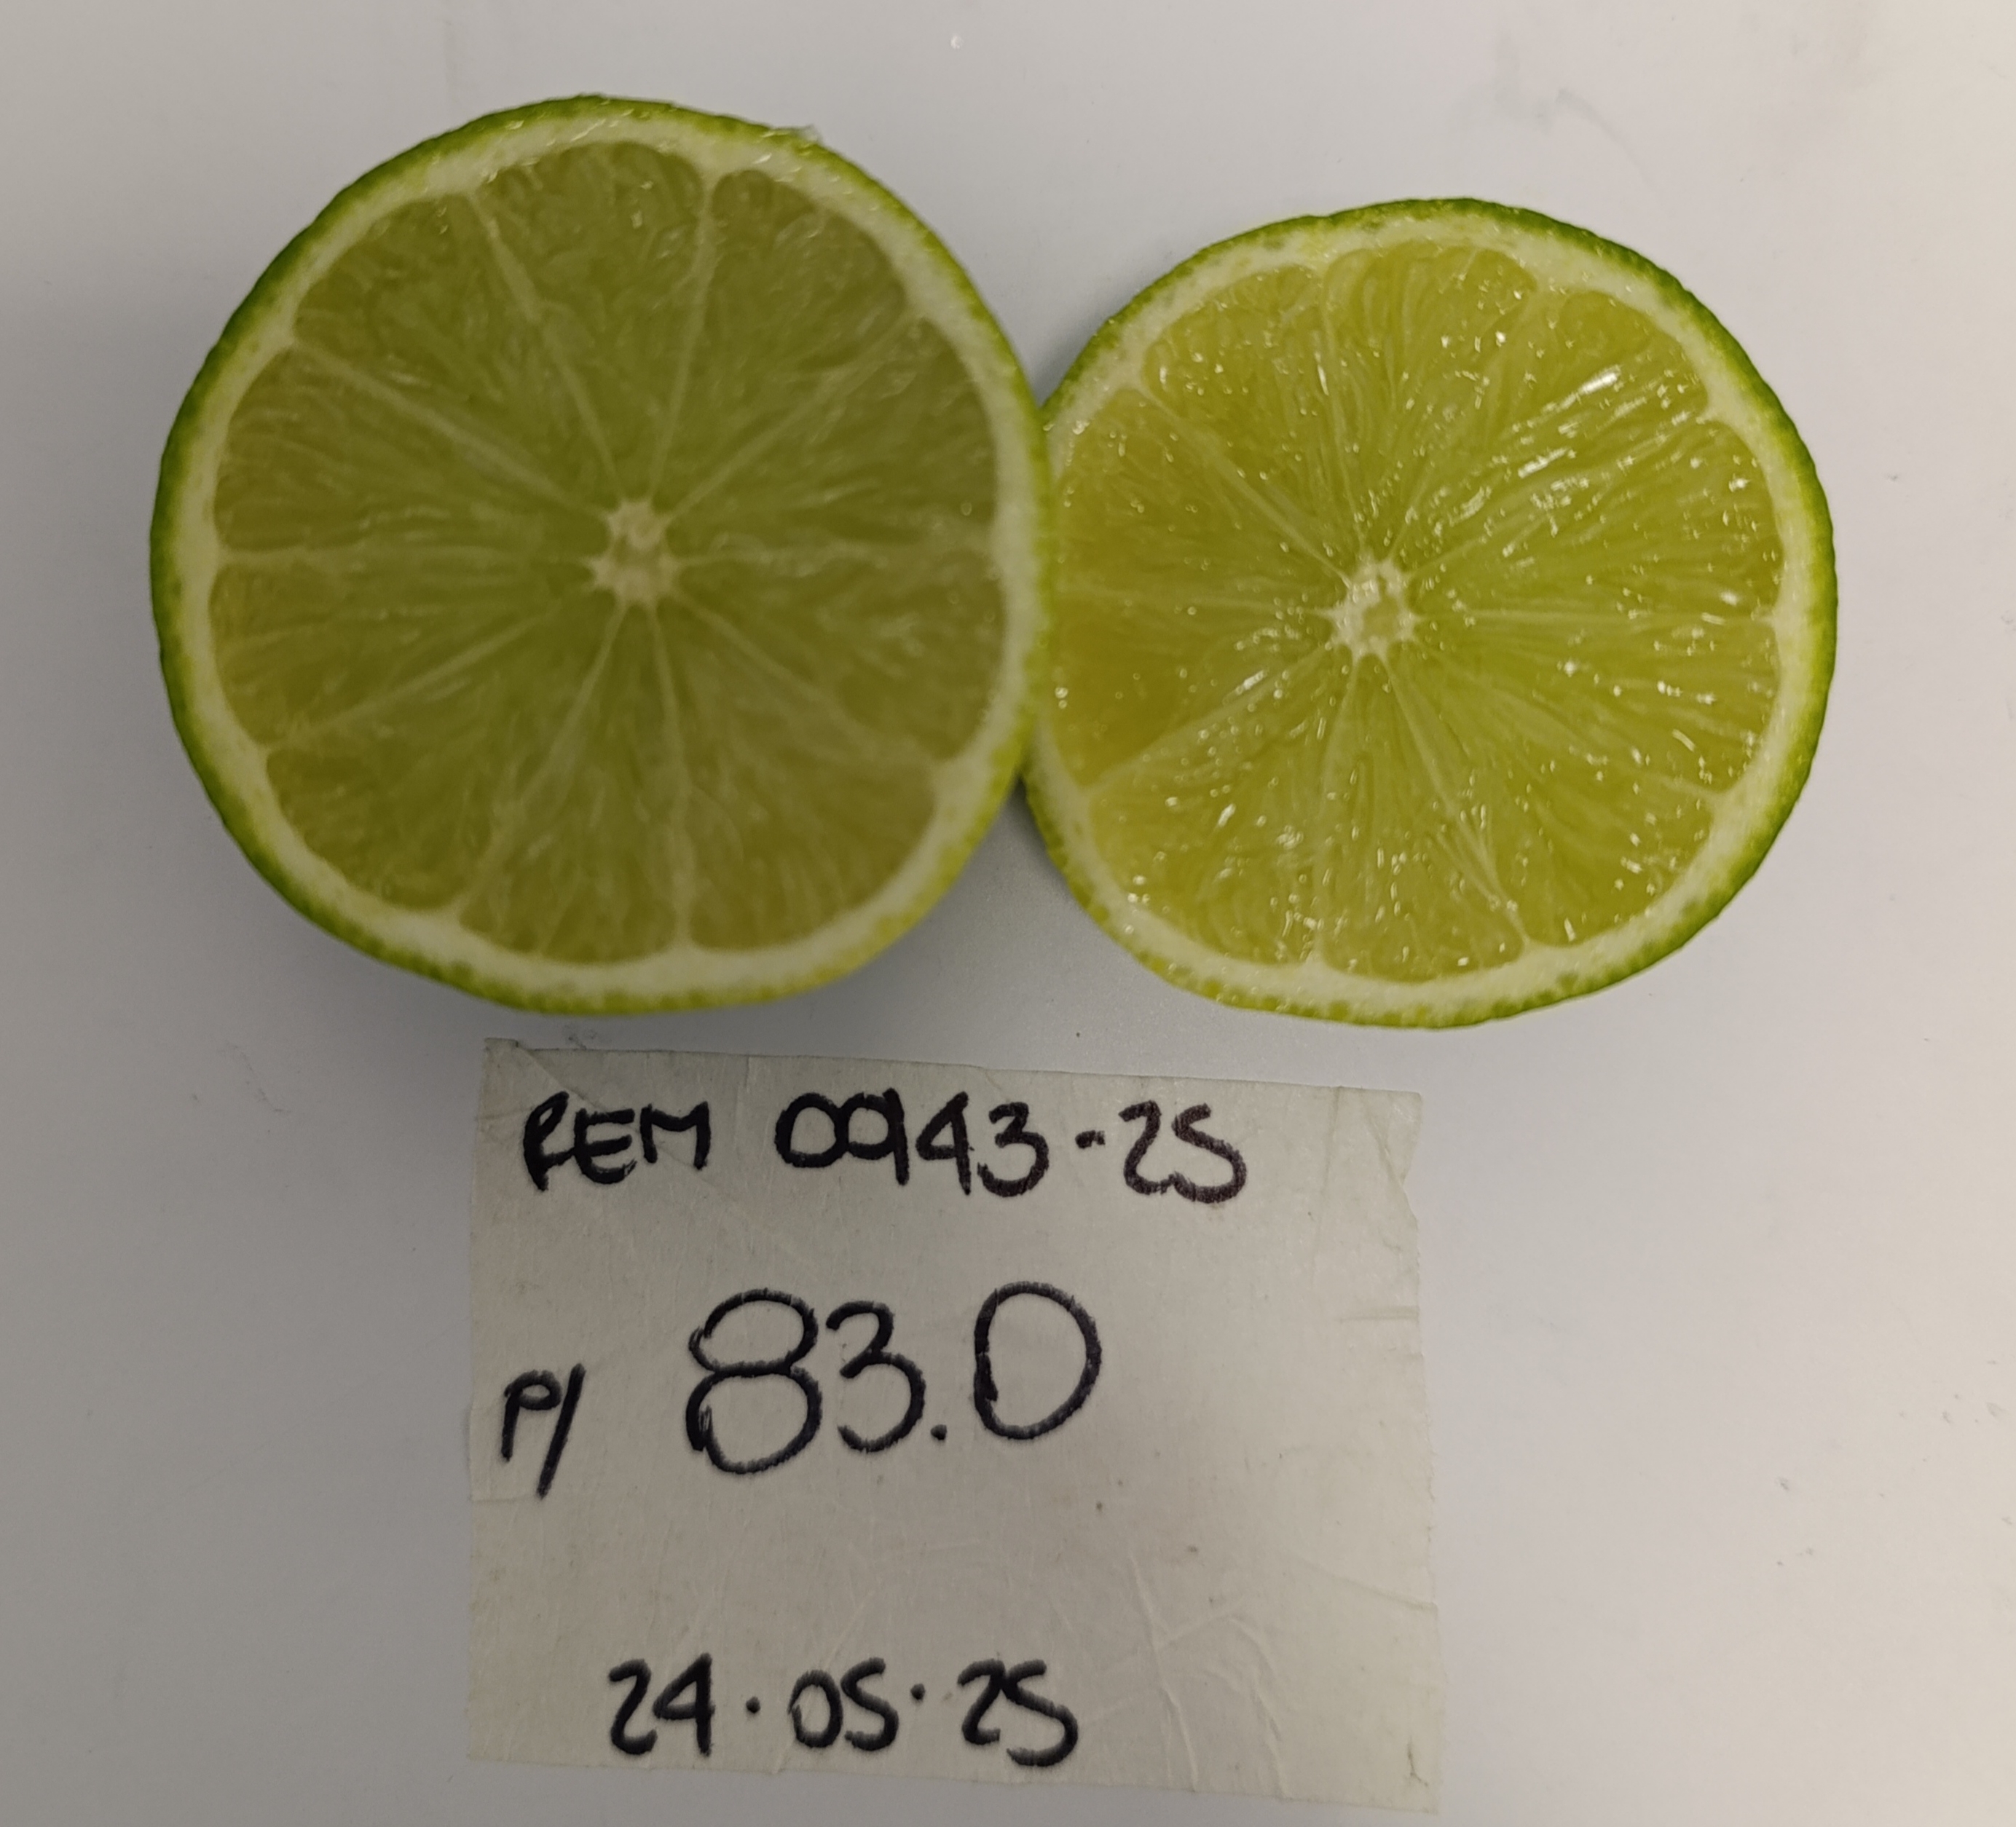 REM 0943-25
P/ 83.0
24.05.25